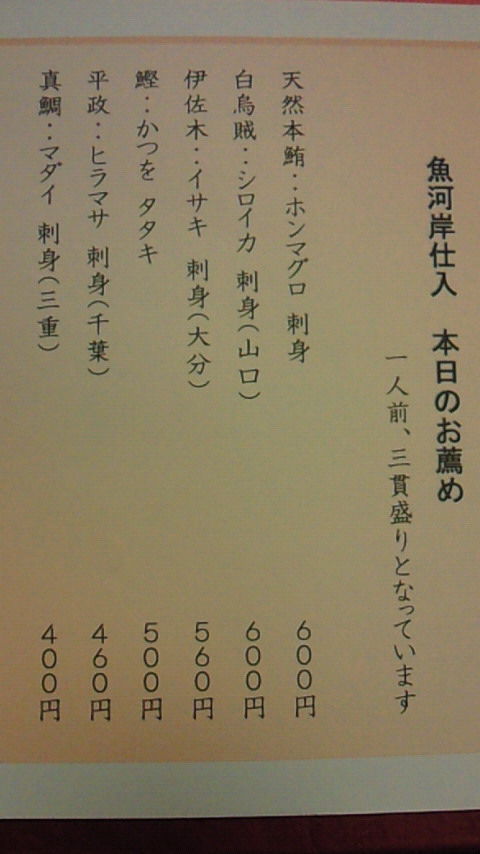 魚河岸仕入　本日のお薦め
一人前、三貫盛りとなっています
天然本鮪：ホンマグロ 刺身 600円
白烏賊：シロイカ 刺身(山口) 600円
伊佐木：イサキ 刺身(大分) 560円
鰹：かつを タタキ 500円
平政：ヒラマサ 刺身(千葉) 460円
真鯛：マダイ 刺身(三重) 400円